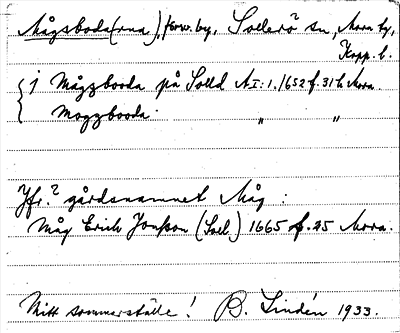 Mågsboda(rna), förv. by, Sollerö sn, Mora tg,
Kopp. l.
j Mågzbooda på Solld AI:1. 1652 f. 31 b Mora.
Mogzbooda " "
Jfr.? gårdsnamnet Måg:
Måg Erich Jonsson (Soll.) 1665 f. 25 Mora.
Mitt sommerställe! B. Lindén 1933.